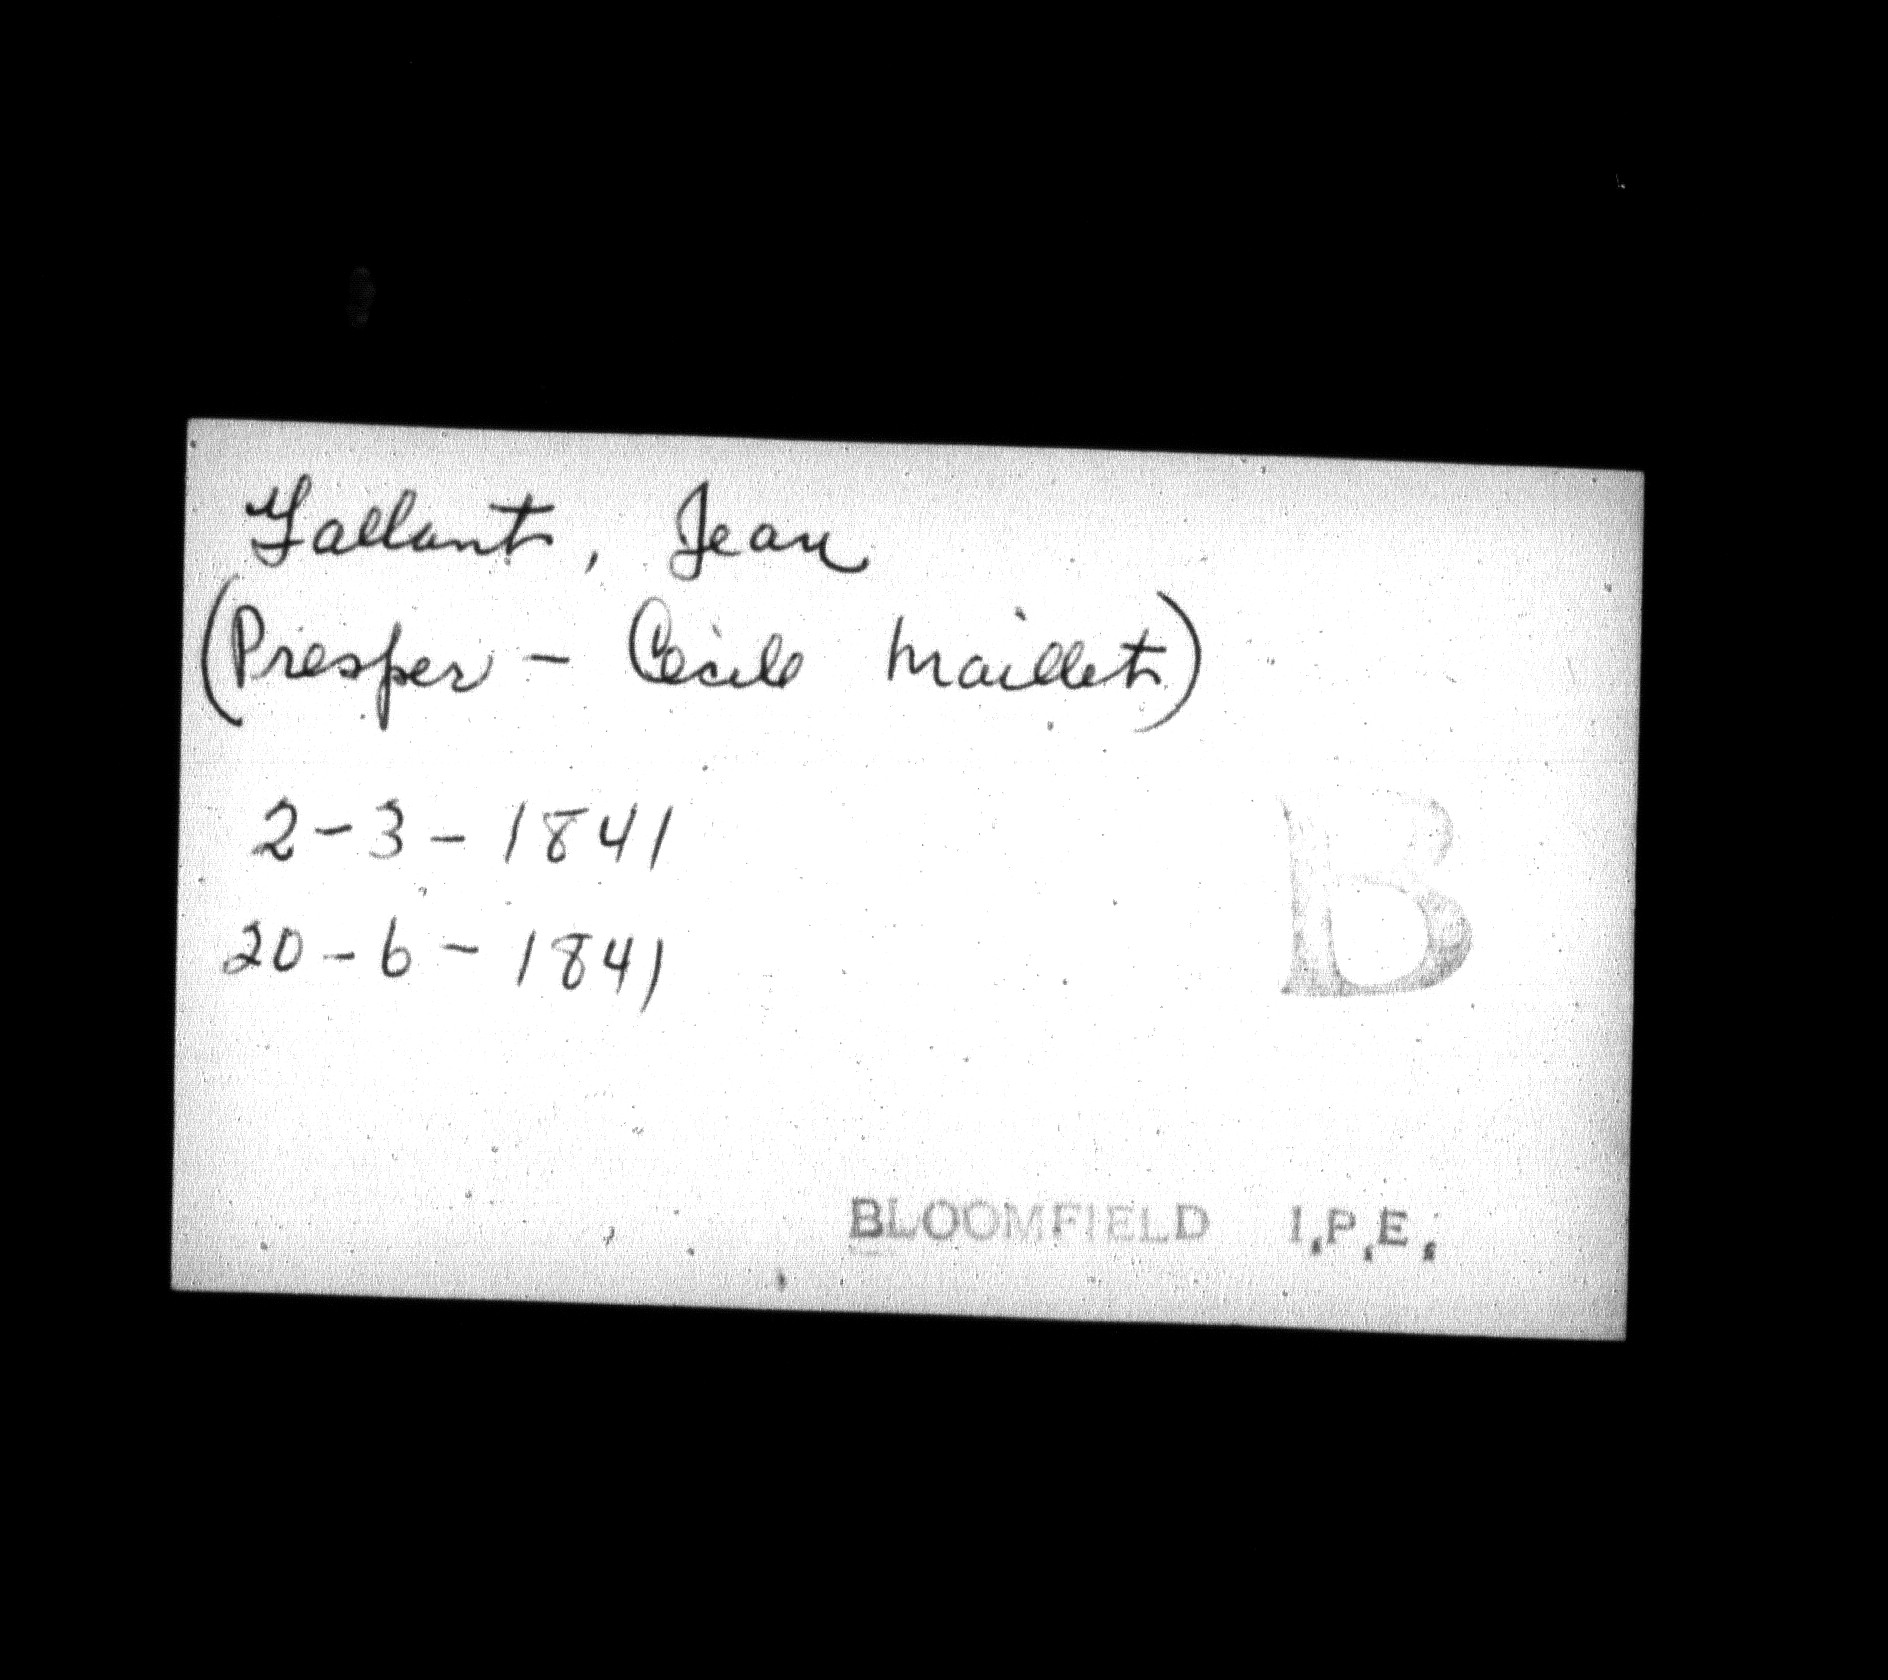 Gallant, Jean
(Presper - Cecile Maillet)
2-3-1841
B
20-6-1841
BLOOMFIELD I.P.E.